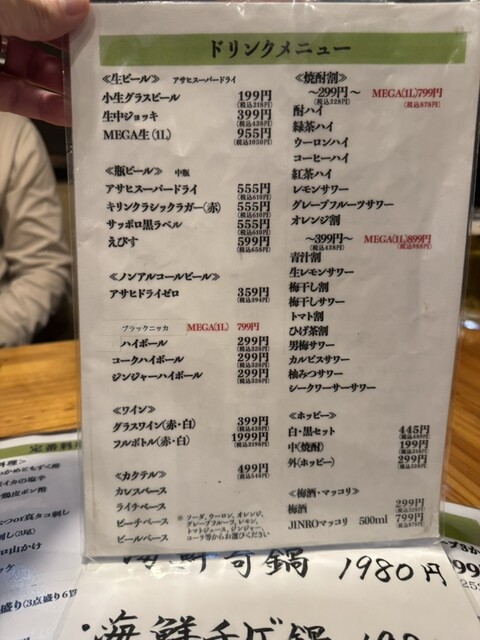 ドリンクメニュー
≪生ビール≫ アサヒスーパードライ
小生グラスビール 199円
(税込218円)
生中ジョッキ 399円
(税込438円)
MEGA生 (1L) 955円
(税込1050円)
≪瓶ビール≫ 中瓶
アサヒスーパードライ 555円
(税込610円)
キリンクラシックラガー(赤) 555円
(税込610円)
サッポロ黒ラベル 555円
(税込610円)
えびす 599円
(税込658円)
≪ノンアルコールビール≫
アサヒドライゼロ 359円
(税込394円)
ブラックニッカ MEGA(1L) 799円
ハイボール 299円
(税込328円)
コークハイボール 299円
(税込328円)
ジンジャーハイボール 299円
(税込328円)
≪ワイン≫
グラスワイン(赤・白) 399円
(税込438円)
フルボトル(赤・白) 1999円
(税込2198円)
≪カクテル≫ 499円
(税込548円)
カシスベース
ライチベース
ピーチベース
ビールベース
※ソーダ、ウーロン、オレンジ、
グレープフルーツ、レモン、
トマトジュース、ジンジャー、
コーラ等からお選びください
≪焼酎割≫
～299円～ MEGA(1L)799円
(税込328円) (税込878円)
酎ハイ
緑茶ハイ
ウーロンハイ
コーヒーハイ
紅茶ハイ
レモンサワー
グレープフルーツサワー
オレンジ割
～399円～ MEGA(1L)899円
(税込438円) (税込988円)
青汁割
生レモンサワー
梅干し割
梅干しサワー
トマト割
ひげ茶割
男梅サワー
カルピスサワー
柚みつサワー
シークワーサーサワー
≪ホッピー≫
白・黒セット 445円
中(焼酎) 199円
外(ホッピー) 299円
≪梅酒・マッコリ≫
梅酒 299円
JINROマッコリ 500ml 799円
定番料
海鮮寄鍋 1980円
・海鮮チゲ鍋
盛り(3点盛り6切
山かけ
鶏皮ポン酢